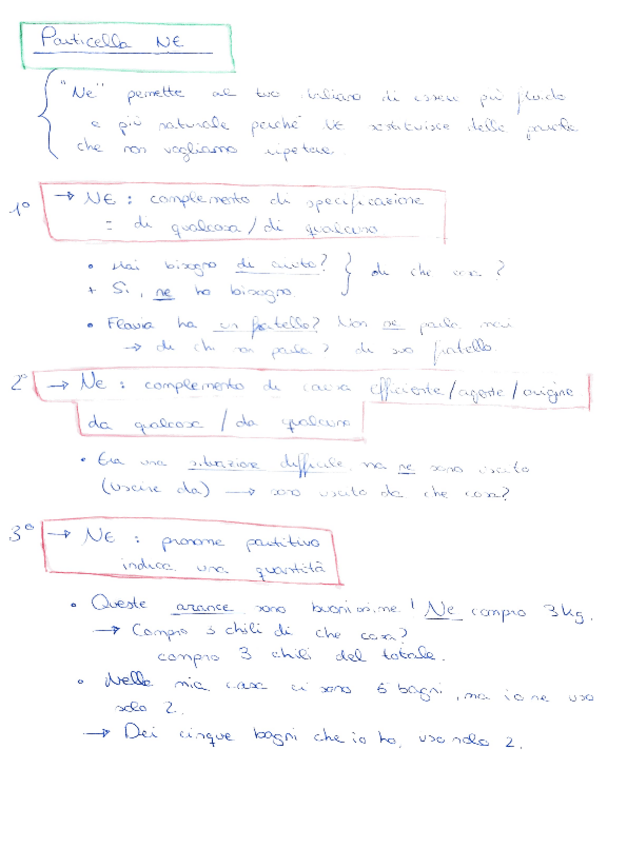 Particella NE
"Ne" permette al tuo italiano di essere più fluido
e più naturale perché NE sostituisce delle parole
che non vogliamo ripetere.
1° → NE : complemento di specificazione
= di qualcosa / di qualcuno
• Hai bisogno di aiuto? } di che cosa ?
+ Sì, ne ho bisogno.
• Flavia ha un fratello? Non ne parla mai
→ di chi non parla? di suo fratello
2° → Ne : complemento di causa efficiente / agente / origine
da qualcosa / da qualcuno
• Era una situazione difficile ma ne sono uscito
(uscire da) → sono uscito da che cosa?
3° → NE : pronome partitivo
indica una quantità
• Queste arance sono buonissime! Ne compro 3 kg.
→ Compro 3 chili di che cosa?
compro 3 chili del totale.
• Nella mia casa ci sono 5 bagni, ma io ne uso
solo 2.
→ Dei cinque bagni che io ho, uso solo 2.